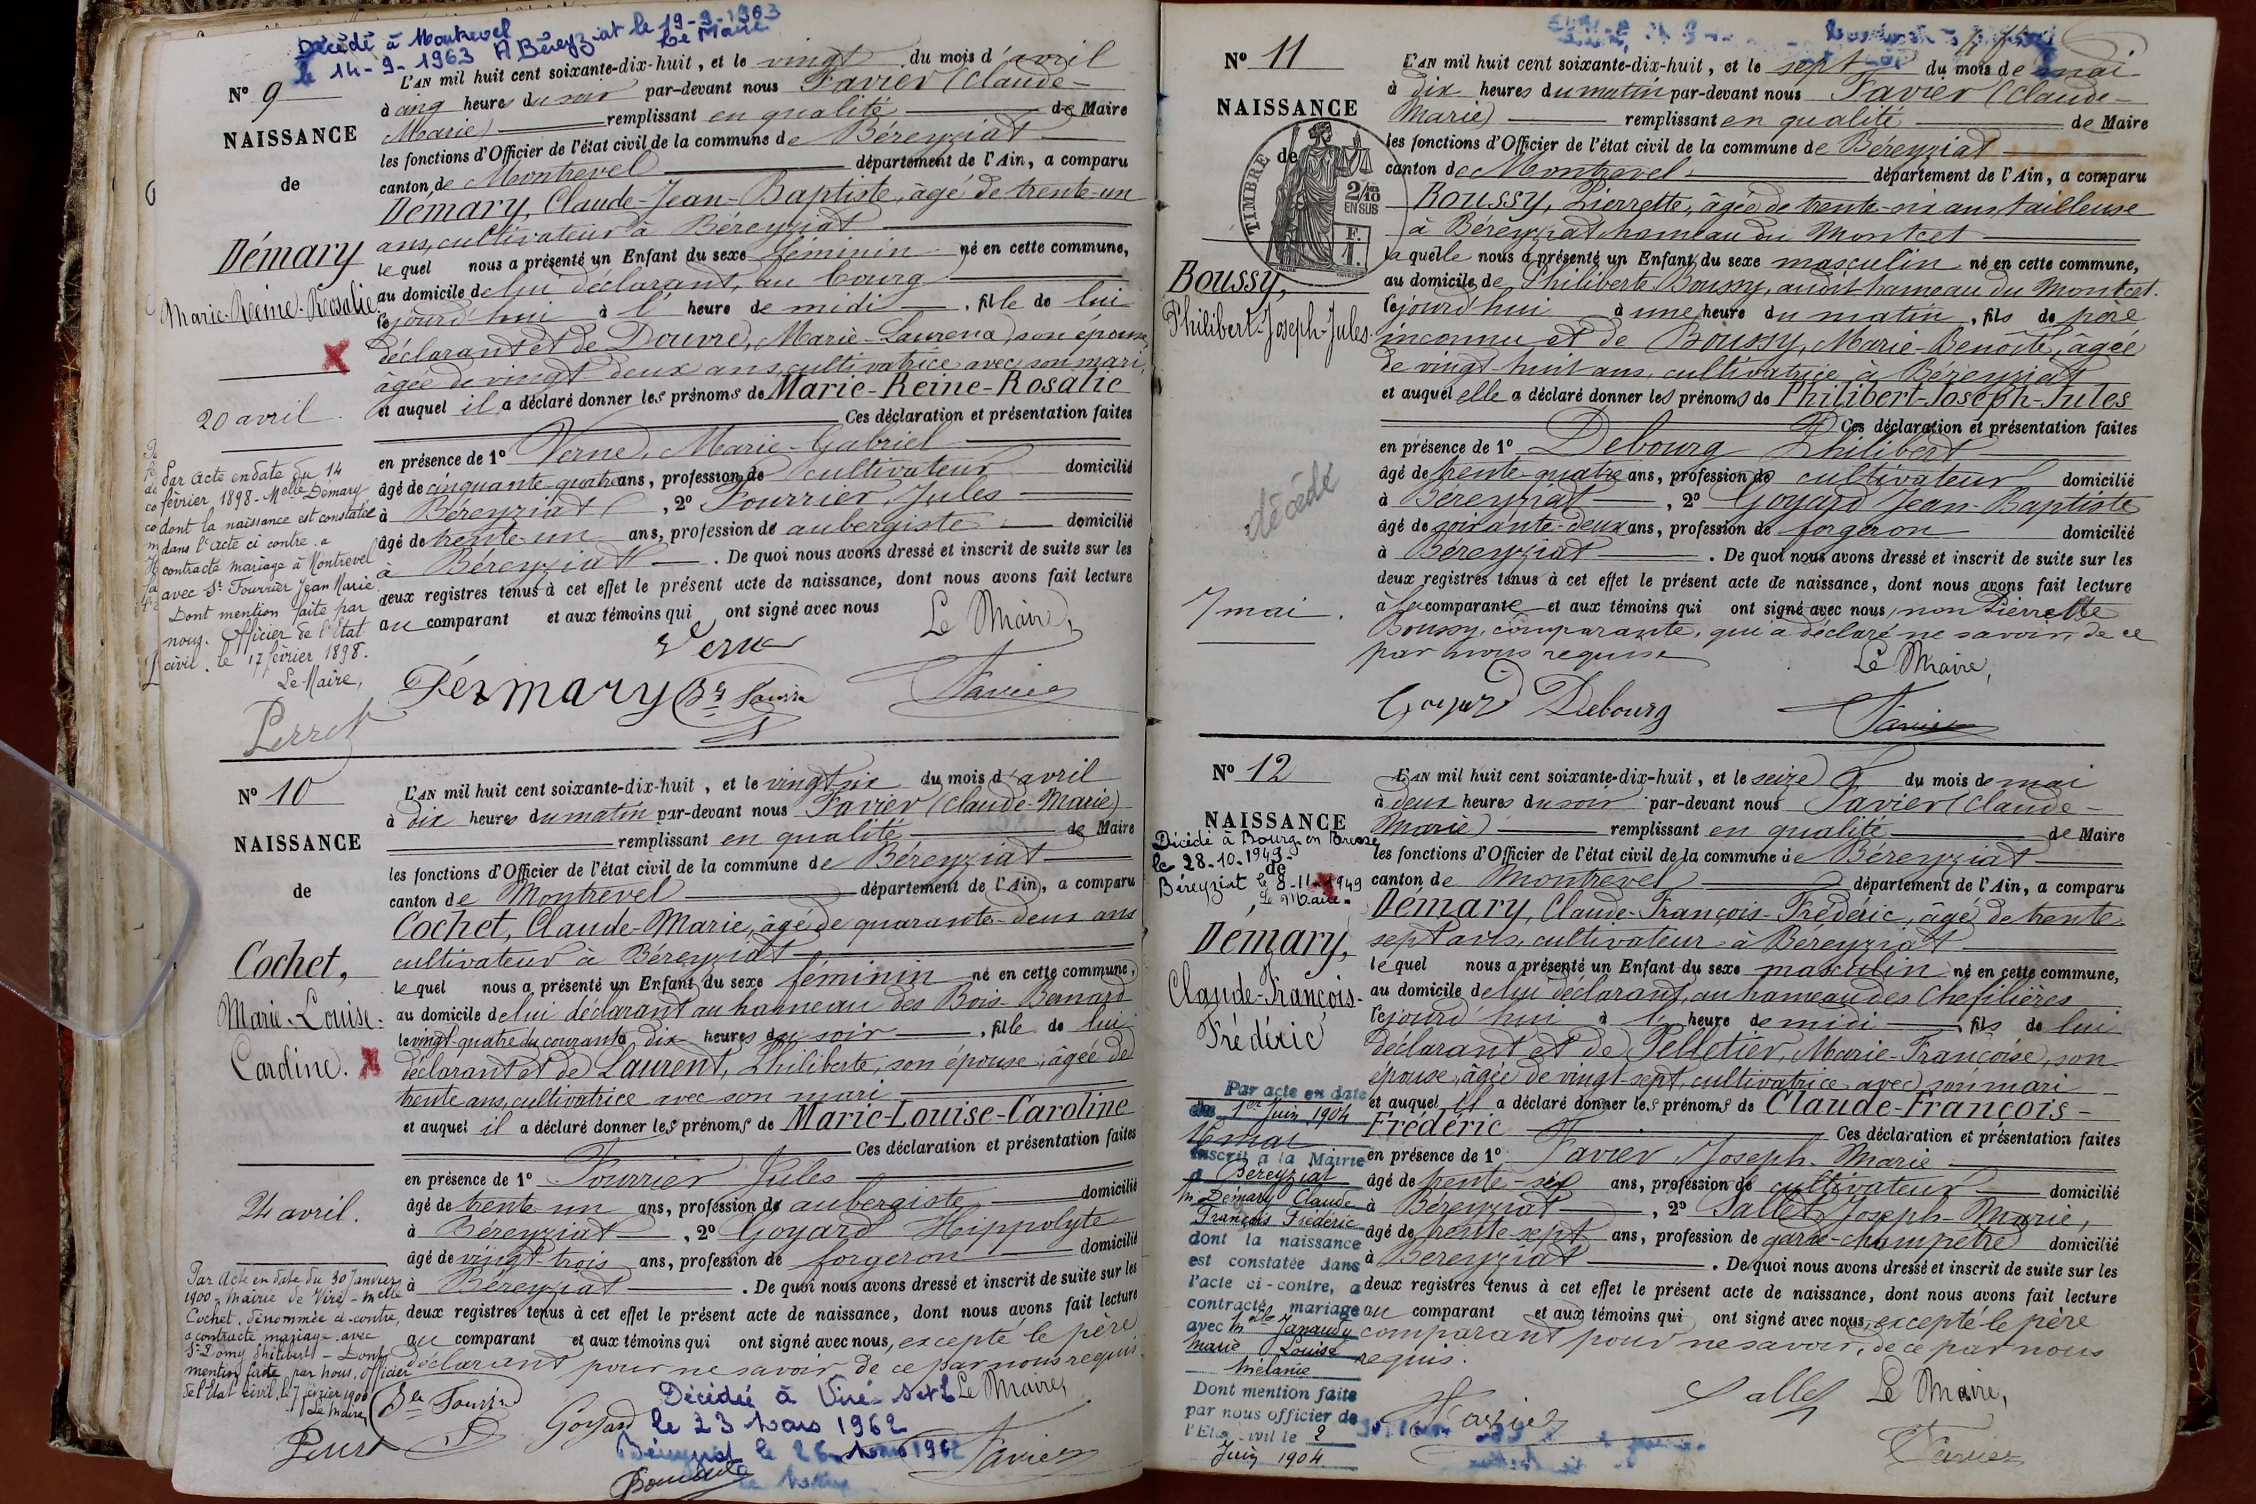 Décédé à Montrevel
le 14-9-1963 A Béreyziat le 19-9-1963
Le Maire
N° 9
NAISSANCE
de
Démary
Marie-Reine-Rosalie
20 avril
Par acte en date du 14
février 1898 - Melle Démary
dont la naissance est constatée
dans l'acte ci contre. a
contracté mariage à Montrevel
avec Sr Fourrier Jean Marie
Dont mention faite par
nous. Officier de l'Etat
civil. le 17 février 1898.
Le Maire,
Perret
L'AN mil huit cent soixante-dix-huit, et le vingt du mois d'avril
à cinq heures du soir par-devant nous Favier (Claude-
Marie) remplissant en qualité de Maire
les fonctions d'Officier de l'état civil de la commune de Béreyziat
canton de Montrevel département de l'Ain, a comparu
Démary, Claude-Jean-Baptiste, âgé de trente-un
ans, cultivateur à Béreyziat
lequel nous a présenté un Enfant du sexe féminin né en cette commune,
au domicile de lui déclarant, au bourg
cejourd'hui à l' heure de midi, fille de lui
déclarant et de Douvre, Marie-Laurena, son épouse,
âgée de vingt deux ans, cultivatrice avec son mari,
et auquel il a déclaré donner les prénoms de Marie-Reine-Rosalie
Ces déclaration et présentation faites
en présence de 1° Verne, Marie-Gabriel
âgé de cinquante-quatre ans, profession de cultivateur domicilié
à Béreyziat, 2° Fourrier Jules
âgé de trente-un ans, profession de aubergiste domicilié
à Béreyziat. De quoi nous avons dressé et inscrit de suite sur les
deux registres tenus à cet effet le présent acte de naissance, dont nous avons fait lecture
au comparant et aux témoins qui ont signé avec nous
Verne Le Maire,
Démary Favier
N° 10
NAISSANCE
de
Cochet,
Marie-Louise-
Caroline.
24 avril.
Par Acte en date du 30 Janvier
1900 - Mairie de Viré - Melle
Cochet, dénommée ci-contre,
a contracté mariage avec
Sr Domy Philibert - Dont
mention faite par nous, Officier
de l'Etat civil, le 7 février 1900
Le Maire,
Perret
L'AN mil huit cent soixante-dix-huit, et le vingt-six du mois d'avril
à dix heures du matin par-devant nous Favier (Claude-Marie)
remplissant en qualité de Maire
les fonctions d'Officier de l'état civil de la commune de Béreyziat
canton de Montrevel département de l'Ain, a comparu
Cochet, Claude-Marie, âgé de quarante-deux ans
cultivateur à Béreyziat
lequel nous a présenté un Enfant du sexe féminin né en cette commune,
au domicile de lui déclarant au hameau des Bois Bernard
le vingt-quatre du courant à dix heures du soir, fille de lui
déclarant et de Laurent, Philiberte, son épouse, âgée de
trente ans, cultivatrice avec son mari
et auquel il a déclaré donner les prénoms de Marie-Louise-Caroline
Ces déclaration et présentation faites
en présence de 1° Fourrier Jules
âgé de trente un ans, profession de aubergiste domicilié
à Béreyziat, 2° Goyard Hippolyte
âgé de vingt-trois ans, profession de forgeron domicilié
à Béreyziat. De quoi nous avons dressé et inscrit de suite sur les
deux registres tenus à cet effet le présent acte de naissance, dont nous avons fait lecture
au comparant et aux témoins qui ont signé avec nous, excepté le père
déclarant pour ne savoir de ce par nous requis.
Décédée à Viré
Le Maire,
Goyard le 23 Mars 1962
Béreyziat le 26 Mars 1962
Favier
N° 11
NAISSANCE
de
TIMBRE
2/10
EN SUS
F.
1.
Boussy,
Philibert-Joseph-Jules.
décédé
7 mai.
L'AN mil huit cent soixante-dix-huit, et le sept du mois de mai
à dix heures du matin par-devant nous Favier (Claude-
Marie) remplissant en qualité de Maire
les fonctions d'Officier de l'état civil de la commune de Béreyziat
canton de Montrevel département de l'Ain, a comparu
Boussy, Pierrette, âgée de trente-six ans, tailleuse
à Béreyziat hameau du Montcet
laquelle nous a présenté un Enfant du sexe masculin né en cette commune,
au domicile de Philiberte Boussy, audit hameau du Montcet.
cejourd'hui à une heure du matin, fils de père
inconnu et de Boussy, Marie-Benoîte, âgée
de vingt-huit ans, cultivatrice à Béreyziat
et auquel elle a déclaré donner les prénoms de Philibert-Joseph-Jules
Ces déclaration et présentation faites
en présence de 1° Debourg Philibert
âgé de trente-quatre ans, profession de cultivateur domicilié
à Béreyziat, 2° Goyard Jean-Baptiste
âgé de soixante-deux ans, profession de forgeron domicilié
à Béreyziat. De quoi nous avons dressé et inscrit de suite sur les
deux registres tenus à cet effet le présent acte de naissance, dont nous avons fait lecture
à la comparante et aux témoins qui ont signé avec nous, non Pierrette
Boussy, comparante, qui a déclaré ne savoir, de ce
par nous requise
Le Maire,
Goyard Debourg Favier
N° 12
NAISSANCE
de
Décédé à Bourg en Bresse
le 28-10-1949-
Béreyziat le 8-11-1949
Le Maire-
Démary,
Claude-François-
Frédéric
16 mai
Par acte en date
du 1er Juin 1904
inscrit à la Mairie
d Béreyziat
M Démary Claude
François Frédéric
dont la naissance
est constatée dans
l'acte ci-contre, a
contracté mariage
avec Mlle Janaudy
Marie Louise
Mélanie
Dont mention faite
par nous officier de
l'Etat civil le 2
Juin 1904
L'AN mil huit cent soixante-dix-huit, et le seize du mois de mai
à deux heures du soir par-devant nous Favier (Claude-
Marie) remplissant en qualité de Maire
les fonctions d'Officier de l'état civil de la commune de Béreyziat
canton de Montrevel département de l'Ain, a comparu
Démary, Claude-François-Frédéric, âgé de trente
sept ans, cultivateur à Béreyziat
lequel nous a présenté un Enfant du sexe masculin né en cette commune,
au domicile de lui déclarant, au hameau des Chefilières
cejourd'hui à l' heure de midi, fils de lui
déclarant et de Pelletier, Marie-Françoise, son
épouse, âgée de vingt-sept, cultivatrice avec son mari
et auquel il a déclaré donner les prénoms de Claude-François-
Frédéric Ces déclaration et présentation faites
en présence de 1° Favier Joseph-Marie
âgé de trente-six ans, profession de cultivateur domicilié
à Béreyziat, 2° Sallet Joseph-Marie,
âgé de trente-sept ans, profession de garde-champêtre domicilié
à Béreyziat. De quoi nous avons dressé et inscrit de suite sur les
deux registres tenus à cet effet le présent acte de naissance, dont nous avons fait lecture
au comparant et aux témoins qui ont signé avec nous, excepté le père
comparant pour ne savoir, de ce par nous
requis.
Sallet Le Maire,
Favier Favier